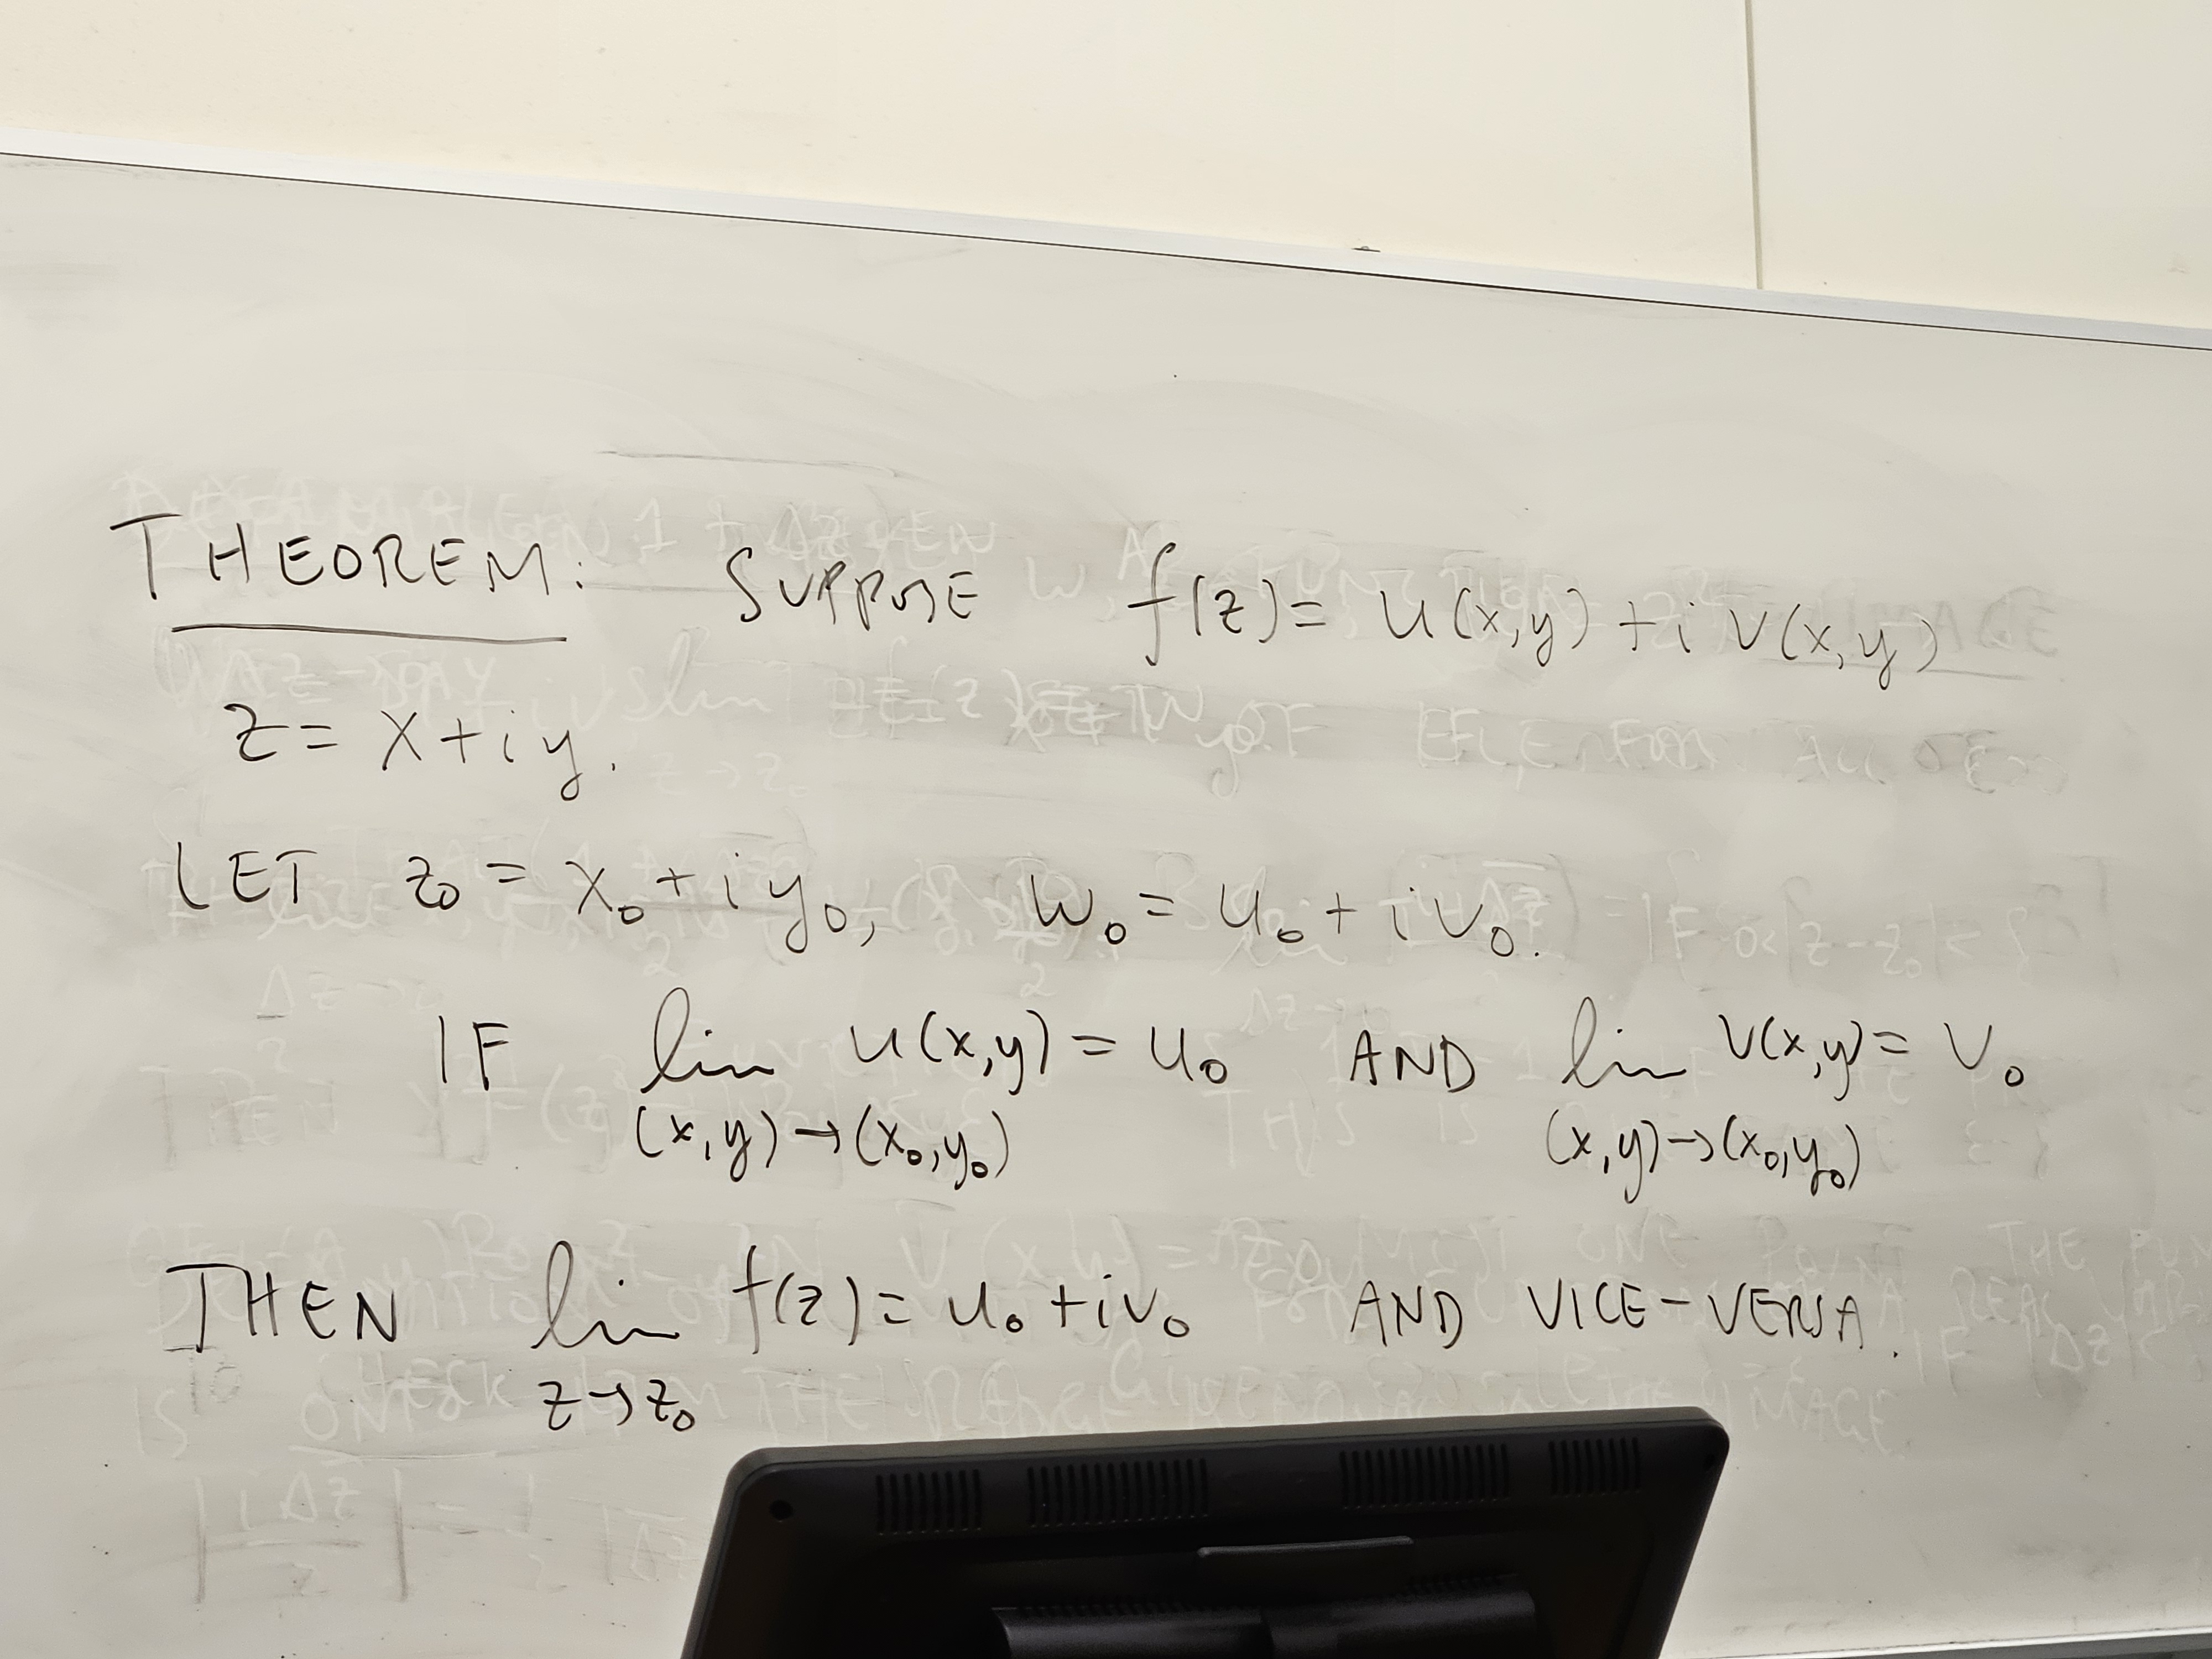 THEOREM: SUPPOSE f(z) = u(x,y) + i v(x,y)
z = x + i y.
LET z₀ = x₀ + i y₀, w₀ = u₀ + i v₀.
IF lim u(x,y) = u₀ AND lim v(x,y) = v₀
(x,y) → (x₀,y₀) (x,y) → (x₀,y₀)
THEN lim f(z) = u₀ + i v₀ AND VICE-VERSA.
z → z₀